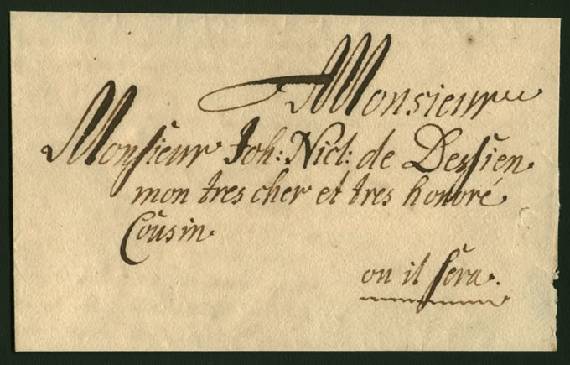 Monsieur
Monsieur Joh: Nicl: de Dessien
mon tres cher et tres honoré
Cousin
ou il sera.